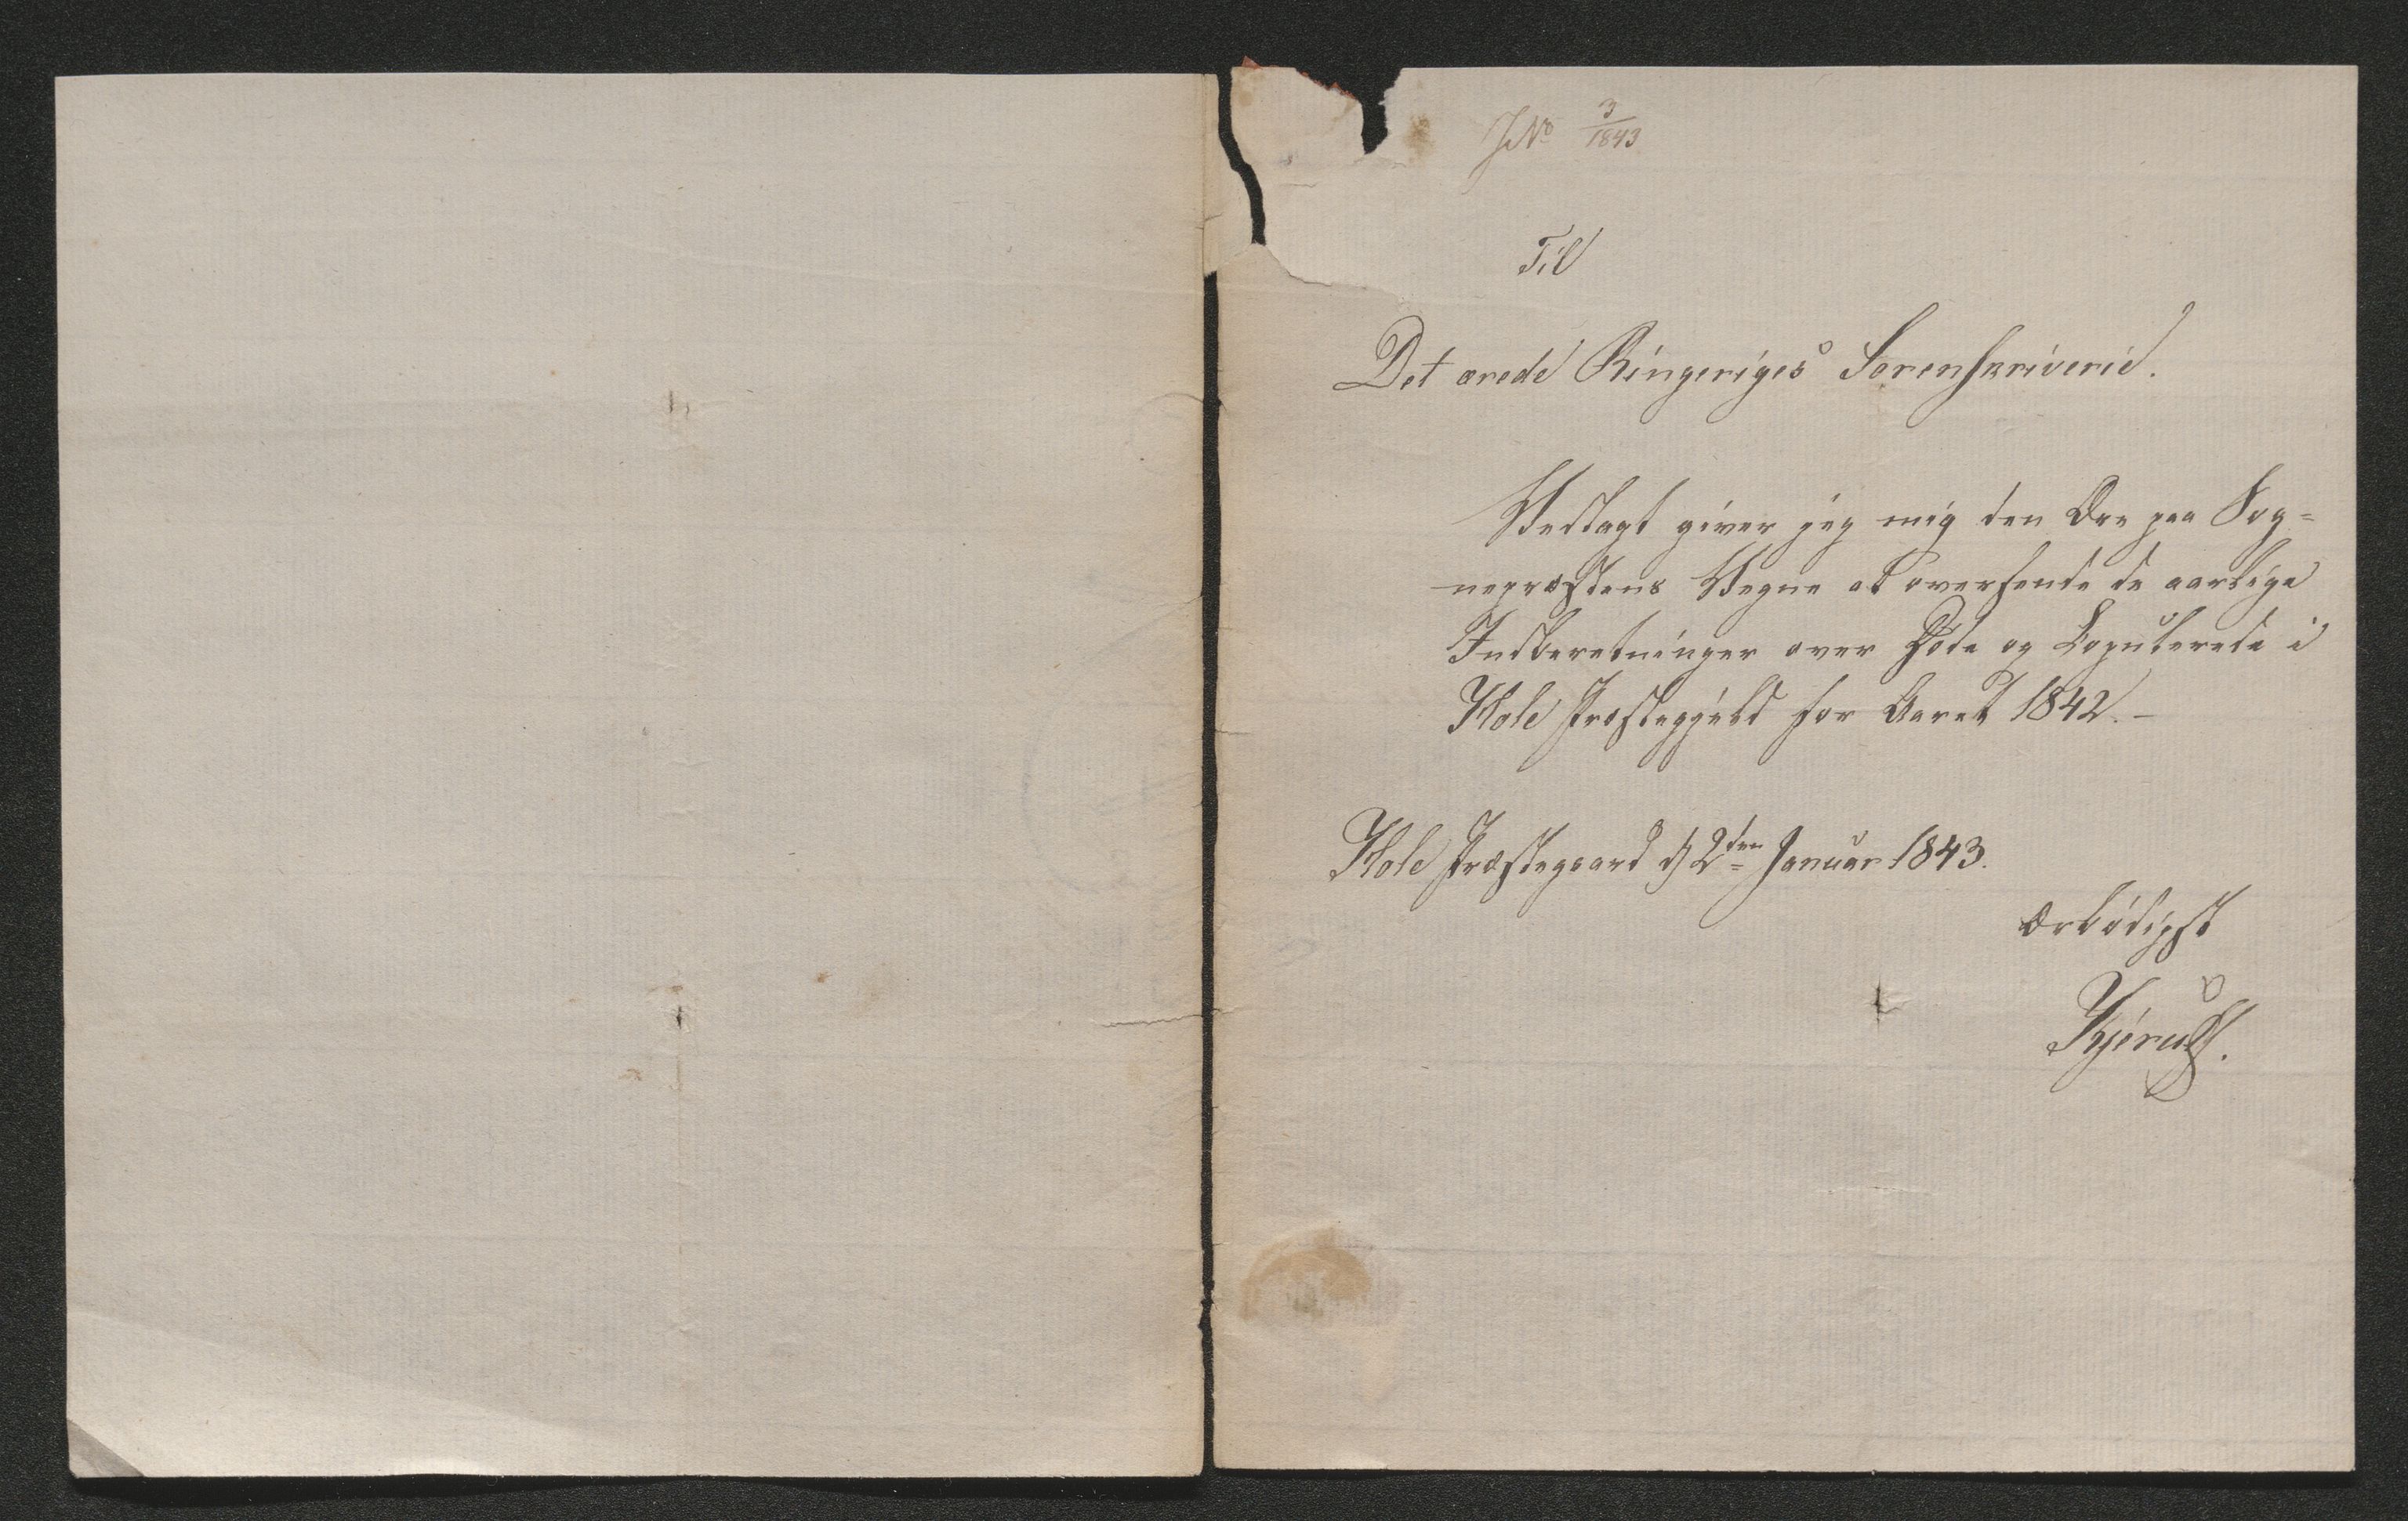 JNo 3/1843
Til
Det ærede Ringeriges Sorenskriverie.
Vedlagt giver jeg mig den Ære paa Sog=
nepræstens Vegne at oversende de aarlige
Indberetninger over Døde og Copulerede i
Hole Præstegjeld for Aaret 1842.-
Hole Præstegaard d 2den Januar 1843.
Ærbødigst
Kjerulf.